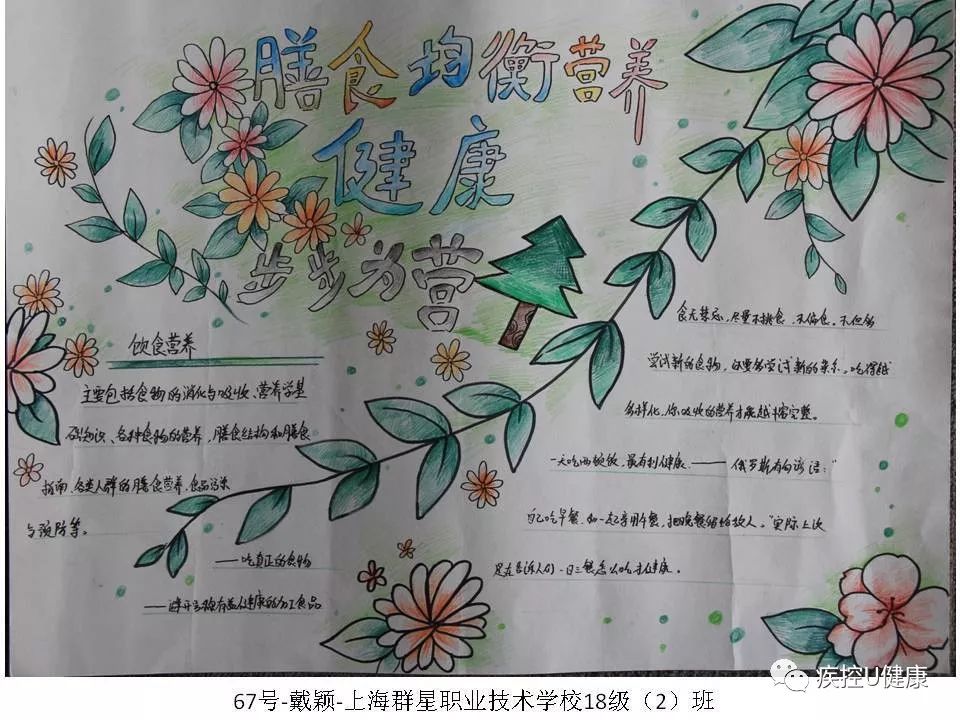 膳食均衡营养
健康
步步为营
饮食营养
主要包括食物的消化与吸收、营养学基
础知识、各种食物的营养，膳食结构和膳食
指南，各类人群的膳食营养，食品污染
与预防等。
——吃真正的食物
——避开号称有益健康的加工食品
食无禁忌，尽量不挑食，不偏食。不但能
尝试新的食物，还要多尝试新的菜系。吃得越
多样化，你吸收的营养才能越丰富完整。
一天吃两顿饭，最有利健康，——俄罗斯有句谚语："
自己吃早餐，和一起享用午餐，把晚餐留给敌人。"实际上这
是在告诉人们一日三餐怎么吃才健康。
疾控U健康
67号-戴颖-上海群星职业技术学校18级（2）班